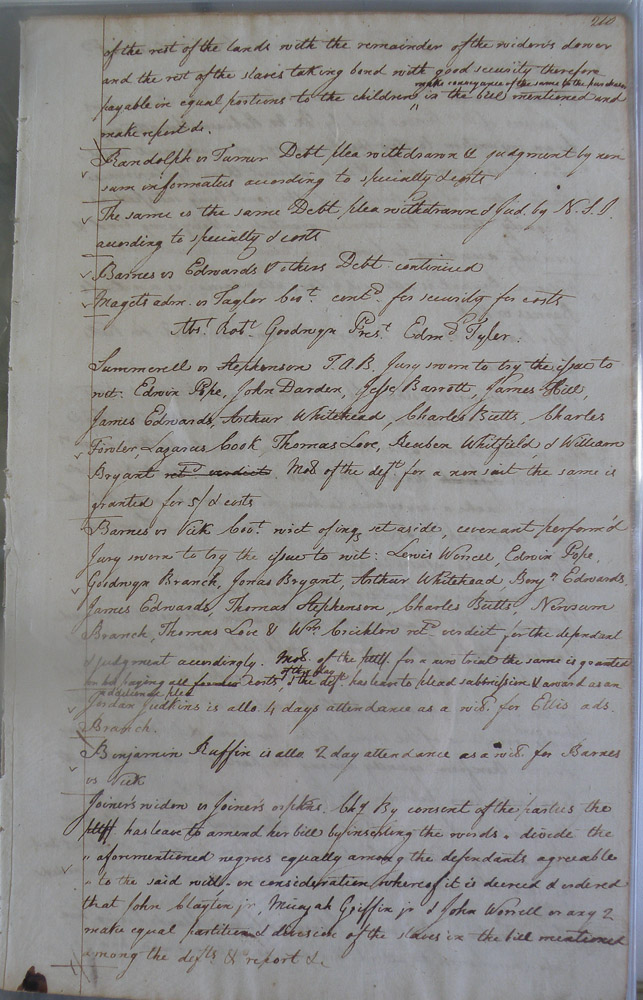 210
of the rest of the lands with the remainder of the widow's dower
and the rest of the slaves taking bond with good security therefore
make conveyance of the same to the purchaser
payable in equal portions to the children ^ in the bill mentioned and
make report &c.
Randolph vs Turner Debt plea withdrawn & judgment by non
sum informatus according to specialty & costs
The same vs the same Debt plea withdrawn & Jud. by N.S.I.
according to specialty & costs
Barnes vs Edwards & others Debt continued
Magets adm. vs Taylor Cov.t cont.d for security for costs
Abs.t Rob.t Goodwyn Pres.t Edm.d Tyler.
Summerell vs Stephenson T.A.B. Jury sworn to try the issue to
wit: Edwin Pope, John Darden, Jesse Barrott, James Hill,
James Edwards, Arthur Whitehead, Charles Butts, Charles
Fowler, Lazarus Cook, Thomas Love, Reuben Whitfield, & William
Bryant ret.d verdict. Mo. of the def.t for a non suit the same is
granted for 5/ & costs
Barnes vs Vick Cov.t writ of inq set aside, covenant perform'd
Jury sworn to try the issue to wit: Lewis Worrell, Edwin Pope,
Goodwyn Branch, Jonas Bryant, Arthur Whitehead Benj.n Edwards,
James Edwards, Thomas Stephenson, Charles Butts, Newsum
Branch, Thomas Love & Wm. Cricklow ret.d verdict for the defendant
& judgment accordingly. Mo. of the pltff. for a new trial the same is granted
on his paying all costs of this day & the def.t has leave to plead submission & award as an
additional plea
Jordan Judkins is allo. 4 days attendance as a wit. for Ellis ads.
Branch.
Benjamin Ruffin is allo 2 day attendance as a wit. for Barnes
vs Vick
Joiner's widow vs Joiner's orphs. Chy By consent of the parties the
pltff has leave to amend her bill by inserting the words " divide the
" aforementioned negroes equally among the defendants agreeable
" to the said will, on consideration whereof it is decreed & ordered
that John Clayton jr, Micajah Griffin jr & John Worrell or any 2
make equal partition & division of the slaves in the bill mentioned
among the def.ts & report &c